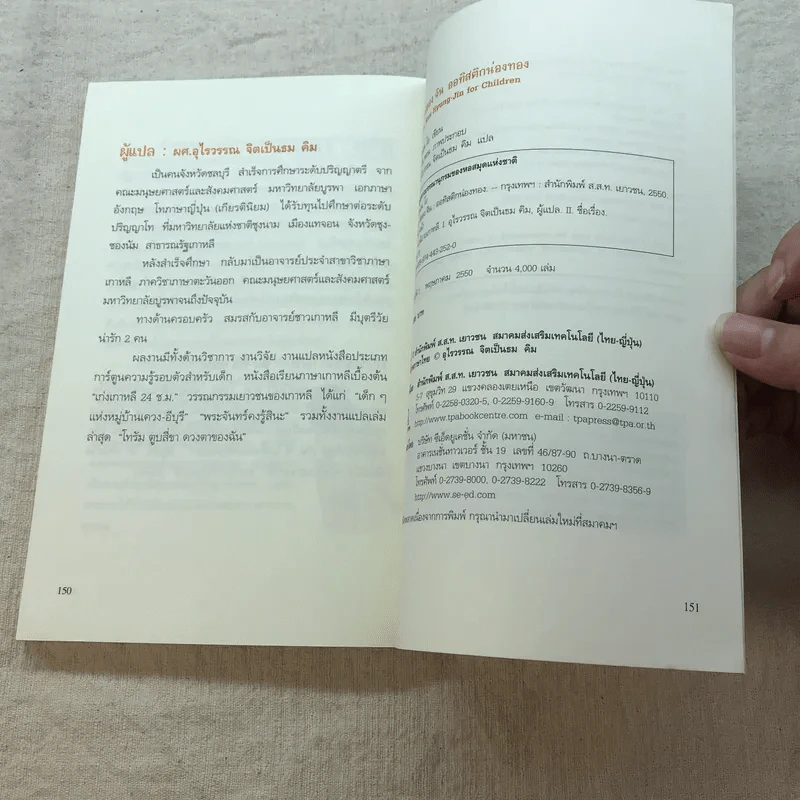 ผู้แปล : ผศ.อุไรวรรณ จิตเป็นธม คิม
เป็นคนจังหวัดชลบุรี สำเร็จการศึกษาระดับปริญญาตรี จาก
คณะมนุษยศาสตร์และสังคมศาสตร์ มหาวิทยาลัยบูรพา เอกภาษา
อังกฤษ โทภาษาญี่ปุ่น (เกียรตินิยม) ได้รับทุนไปศึกษาต่อระดับ
ปริญญาโท ที่มหาวิทยาลัยแห่งชาติชุงนาม เมืองเทจอน จังหวัดชุง-
ชองนัม สาธารณรัฐเกาหลี
หลังสำเร็จศึกษา กลับมาเป็นอาจารย์ประจำสาขาวิชาภาษา
เกาหลี ภาควิชาภาษาตะวันออก คณะมนุษยศาสตร์และสังคมศาสตร์
มหาวิทยาลัยบูรพาจนถึงปัจจุบัน
ทางด้านครอบครัว สมรสกับอาจารย์ชาวเกาหลี มีบุตรีวัย
น่ารัก 2 คน
ผลงานมีทั้งด้านวิชาการ งานวิจัย งานแปลหนังสือประเภท
การ์ตูนความรู้รอบตัวสำหรับเด็ก หนังสือเรียนภาษาเกาหลีเบื้องต้น
"เก่งเกาหลี 24 ช.ม." วรรณกรรมเยาวชนของเกาหลี ได้แก่ "เด็ก ๆ
แห่งหมู่บ้านเควง-อีบุรี" "พระจันทร์คงรู้สินะ" รวมทั้งงานแปลเล่ม
ล่าสุด "โทรัม ตูบสีขา ดวงตาของฉัน"
150
จัน ออทิสติกน่องทอง
Hyung-Jin for Children
เขียน
ภาพประกอบ
จิตเป็นธม คิม แปล
บรรณานุกรมของหอสมุดแห่งชาติ
จัน ออทิสติกน่องทอง. -- กรุงเทพฯ : สำนักพิมพ์ ส.ส.ท. เยาวชน, 2550.
I. อุไรวรรณ จิตเป็นธม คิม, ผู้แปล. II. ชื่อเรื่อง.
-443-252-0
พฤษภาคม 2550 จำนวน 4,000 เล่ม
บาท
สำนักพิมพ์ ส.ส.ท. เยาวชน สมาคมส่งเสริมเทคโนโลยี (ไทย-ญี่ปุ่น)
© อุไรวรรณ จิตเป็นธม คิม
สำนักพิมพ์ ส.ส.ท. เยาวชน สมาคมส่งเสริมเทคโนโลยี (ไทย-ญี่ปุ่น)
5-7 สุขุมวิท 29 แขวงคลองเตยเหนือ เขตวัฒนา กรุงเทพฯ 10110
โทรศัพท์ 0-2258-0320-5, 0-2259-9160-9 โทรสาร 0-2259-9112
http://www.tpabookcentre.com e-mail : tpapress@tpa.or.th
บริษัท ซีเอ็ดยูเคชั่น จำกัด (มหาชน)
อาคารเนชั่นทาวเวอร์ ชั้น 19 เลขที่ 46/87-90 ถ.บางนา-ตราด
แขวงบางนา เขตบางนา กรุงเทพฯ 10260
โทรศัพท์ 0-2739-8000, 0-2739-8222 โทรสาร 0-2739-8356-9
http://www.se-ed.com
เนื่องจากการพิมพ์ กรุณานำมาเปลี่ยนเล่มใหม่ที่สมาคมฯ
151